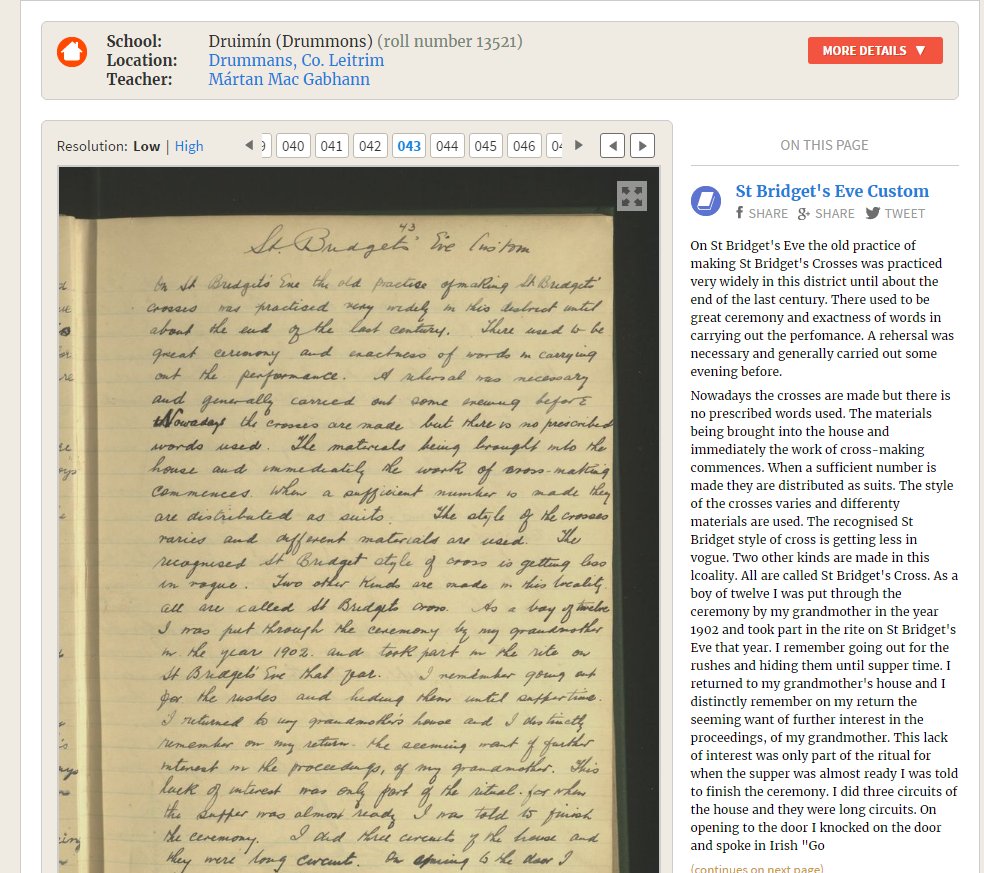 School: Druimín (Drummons) (roll number 13521)
Location: Drummans, Co. Leitrim
Teacher: Mártan Mac Gabhann
MORE DETAILS ▼
Resolution: Low | High
040 041 042 043 044 045 046
43
St. Bridget's Eve Custom
On St Bridget's Eve the old practise of making St Bridget's
crosses was practised very widely in this district until
about the end of the last century. There used to be
great ceremony and exactness of words in carrying
out the performance. A rehersal was necessary
and generally carried out some evening before
Nowadays the crosses are made but there is no prescribed
words used. The materials being brought into the
house and immediately the work of cross-making
commences. When a sufficient number is made they
are distributed as suits. The style of the crosses
varies and different materials are used. The
recognised St Bridget style of cross is getting less
in vogue. Two other kinds are made in this locality
all are called St Bridget's cross. As a boy of twelve
I was put through the ceremony by my grandmother
in the year 1902. and took part in the rite on
St Bridget's Eve that year. I remember going out
for the rushes and hiding them until supper time.
I returned to my grandmother's house and I distinctly
remember on my return the seeming want of further
interest in the proceedings, of my grandmother. This
lack of interest was only part of the ritual for when
the supper was almost ready I was told to finish
the ceremony. I did three circuits of the house and
they were long circuits. On opening to the door I
ON THIS PAGE
St Bridget's Eve Custom
SHARE SHARE TWEET
On St Bridget's Eve the old practice of
making St Bridget's Crosses was practiced
very widely in this district until about the
end of the last century. There used to be
great ceremony and exactness of words in
carrying out the perfomance. A rehersal was
necessary and generally carried out some
evening before.
Nowadays the crosses are made but there is
no prescribed words used. The materials
being brought into the house and
immediately the work of cross-making
commences. When a sufficient number is
made they are distributed as suits. The style
of the crosses varies and differenty
materials are used. The recognised St
Bridget style of cross is getting less in
vogue. Two other kinds are made in this
lcoality. All are called St Bridget's Cross. As a
boy of twelve I was put through the
ceremony by my grandmother in the year
1902 and took part in the rite on St Bridget's
Eve that year. I remember going out for the
rushes and hiding them until supper time. I
returned to my grandmother's house and I
distinctly remember on my return the
seeming want of further interest in the
proceedings, of my grandmother. This lack
of interest was only part of the ritual for
when the supper was almost ready I was told
to finish the ceremony. I did three circuits of
the house and they were long circuits. On
opening to the door I knocked on the door
and spoke in Irish "Go
(continues on next page)